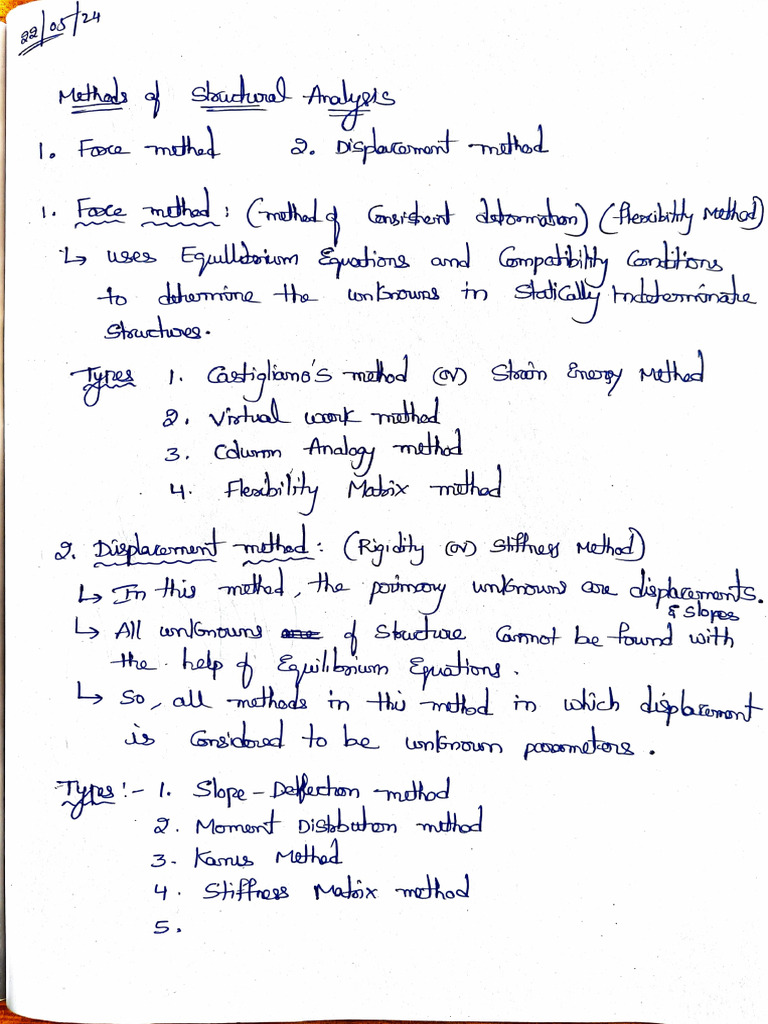 22/05/24
Methods of Structural Analysis
1. Force method 2. Displacement method
1. Force method : (method of Consistent deformation) (flexibility Method)
↳ uses Equilibrium Equations and Compatibility Conditions
to determine the unknowns in Statically Indeterminate
Structures.
Types 1. Castigliano's method (or) Strain Energy Method
2. Virtual work method
3. Column Analogy method
4. Flexibility Matrix method
2. Displacement method : (Rigidity (or) Stiffness Method)
↳ In this method, the primary unknowns are displacements.
& Slopes
↳ All unknowns of Structure Cannot be found with
the help of Equilibrium Equations.
↳ So, all methods in this method in which displacement
is Considered to be unknown parameters.
Types :- 1. Slope - Deflection method
2. Moment Distribution method
3. Kanis Method
4. Stiffness Matrix method
5.